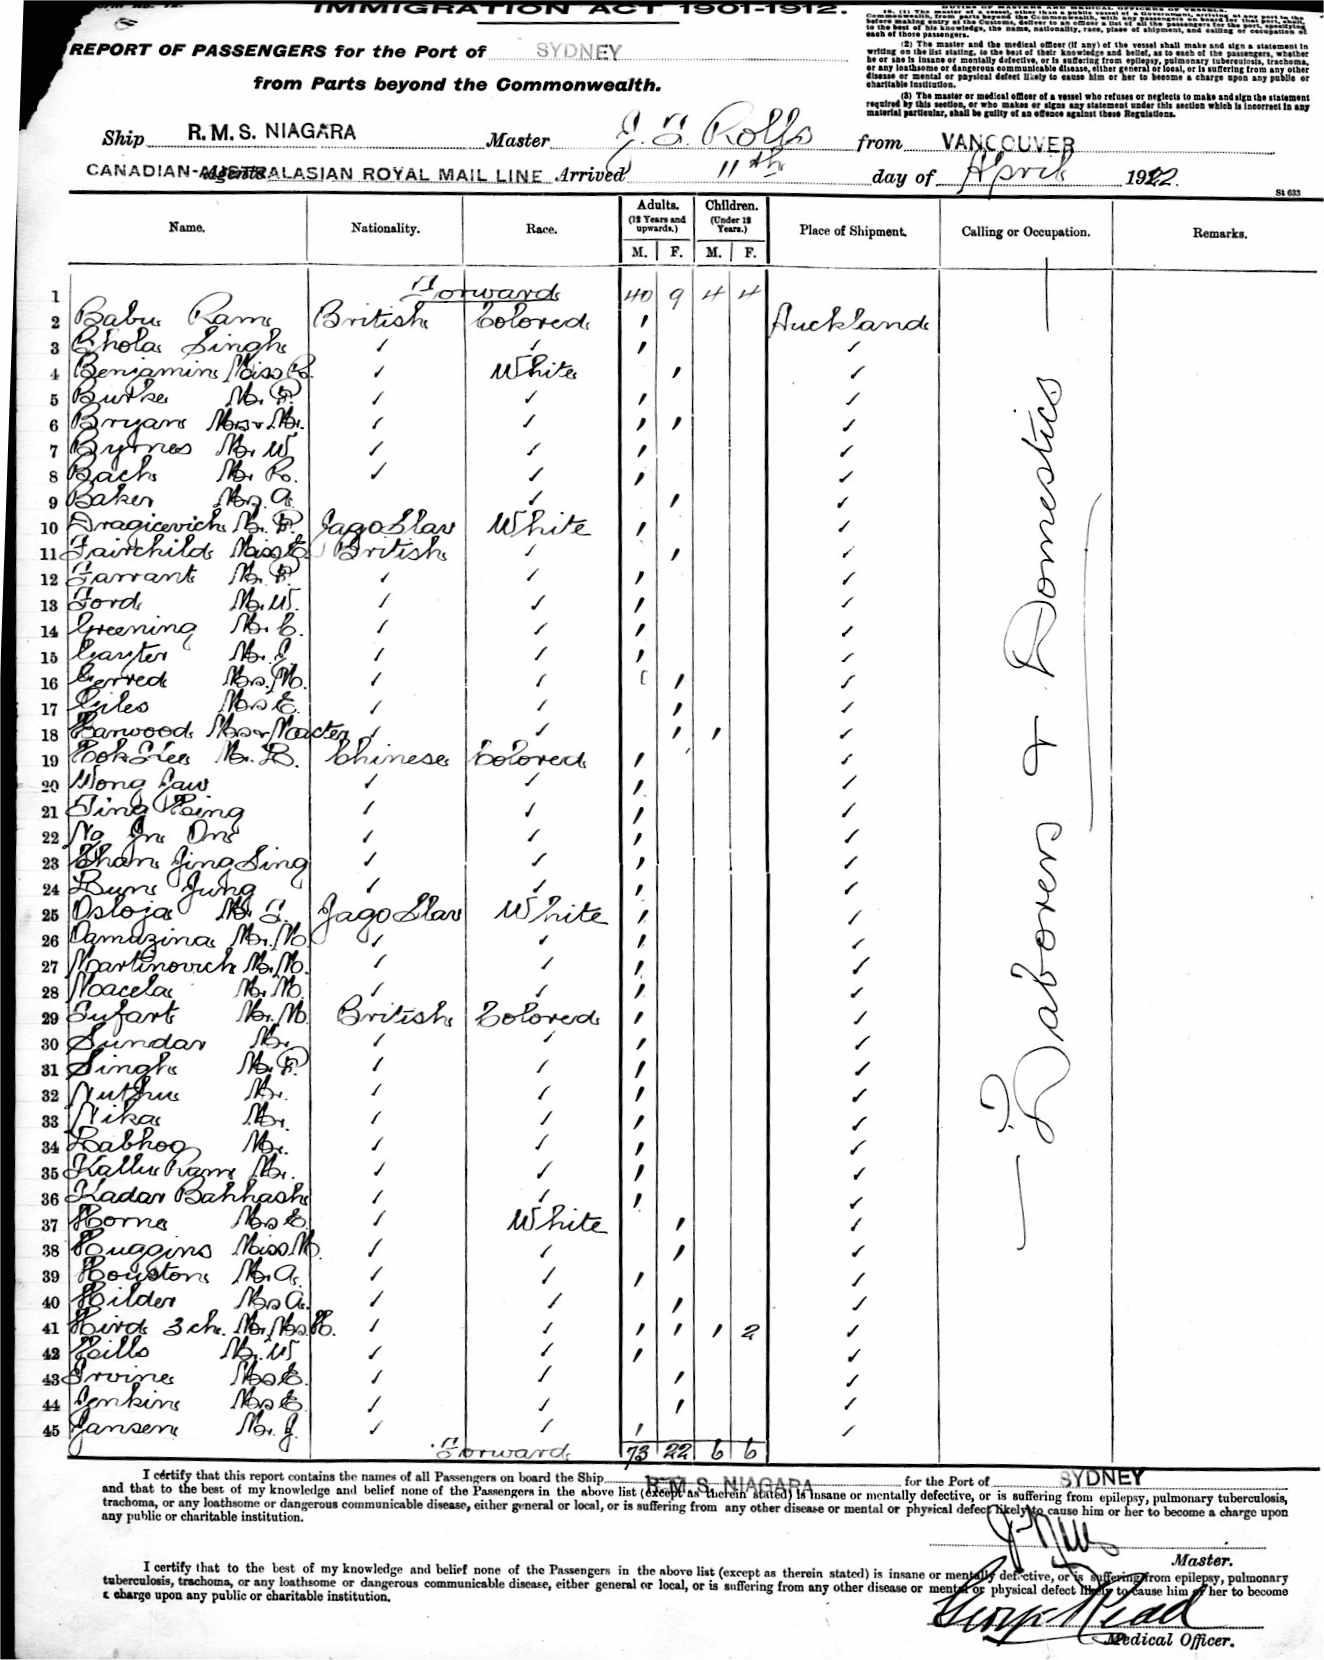 IMMIGRATION ACT 1901-1912.
REPORT OF PASSENGERS for the Port of SYDNEY
from Parts beyond the Commonwealth.
(2) The master and the medical officer (if any) of the vessel shall make and sign a statement in
writing on the list stating, to the best of their knowledge and belief, as to each of the passengers, whether
he or she is insane or mentally defective, or is suffering from epilepsy, pulmonary tuberculosis, trachoma,
or any loathsome or dangerous communicable disease, either general or local, or is suffering from any other
disease or mental or physical defect likely to cause him or her to become a charge upon any public or
charitable institution.
(3) The master or medical officer of a vessel who refuses or neglects to make and sign the statement
required by this section, or who makes or signs any statement under this section which is incorrect in any
material particular, shall be guilty of an offence against these Regulations.
Ship R.M.S. NIAGARA Master J. T. Rolls from VANCOUVER
CANADIAN-AUSTRALASIAN ROYAL MAIL LINE Arrived 11th day of April 1922.
St 633
Name. Nationality. Race. Adults. (12 Years and upwards.) M. F. Children. (Under 12 Years.) M. F. Place of Shipment. Calling or Occupation. Remarks.
1 Forward 40 9 4 4
2 Babu Ram British Colored ' Auckland
3 Chola Singh ✓ ✓ ' ✓
4 Benjamin Miss R. ✓ White ' ✓
5 Burke Mr. P. ✓ ✓ ' ✓
6 Bryan Mrs & Mr. ✓ ✓ ' ' ✓
7 Byrnes Mr. W. ✓ ✓ ' ✓
8 Bach Mr. R. ✓ ✓ ' ✓
9 Baker Mrs. A. ✓ ' ✓
10 Dragicevich Mr. P. Jago Slav White ' ✓
11 Fairchild Miss E. British ✓ ' ✓
12 Farrant Mr. P. ✓ ✓ ' ✓
13 Ford Mr. W. ✓ ✓ ' ✓
14 Greening Mr. C. ✓ ✓ ' ✓
15 Gayter Mr. J. ✓ ✓ ' ✓
16 Gerred Mrs. M. ✓ ✓ ' ✓
17 Giles Mrs E. ✓ ✓ ' ✓
18 Harwood Mrs & Master ✓ ✓ ' ' ✓
19 Hok Lee Mr. B. Chinese Colored ' ✓
20 Wong Jaw ✓ ✓ ' ✓
21 Ting Hing ✓ ✓ ' ✓
22 No Jn On ✓ ✓ ' ✓
23 Cham Jing Sing ✓ ✓ ' ✓
24 Lum Jung ✓ ✓ ' ✓
25 Osloja Mr. T. Jago Slav White ' ✓
26 Damazina Mr. M. ✓ ✓ ' ✓
27 Martinovich Mr. M. ✓ ✓ ' ✓
28 Macela Mr. M. ✓ ✓ ' ✓
29 Tufart Mr. M. British Colored ' ✓
30 Sundar Mr. ✓ ✓ ' ✓
31 Singh Mr. P. ✓ ✓ ' ✓
32 Nuthu Mr. ✓ ✓ ' ✓
33 Nika Mr. ✓ ✓ ' ✓
34 Labhoo Mr. ✓ ✓ ' ✓
35 Kallu Ram Mr. ✓ ✓ ' ✓
36 Kadar Bakhash ✓ ✓ ' ✓
37 Horne Mrs E. ✓ White ' ✓
38 Huggins Miss M. ✓ ✓ ' ✓
39 Houston Mr. A. ✓ ✓ ' ✓
40 Hilder Mrs A. ✓ ✓ ' ✓
41 Hird 3 ch. Mr. Mrs H. ✓ ✓ ' ' ' 2 ✓
42 Hills Mr. W. ✓ ✓ ' ✓
43 Irvine Mrs E. ✓ ✓ ' ✓
44 Jenkins Mrs E. ✓ ✓ ' ✓
45 Jansen Mr. J. ✓ ✓ ' ✓
Laborers & Domestics
Forward 73 22 6 6
I certify that this report contains the names of all Passengers on board the Ship R.M.S. NIAGARA for the Port of SYDNEY
and that to the best of my knowledge and belief none of the Passengers in the above list (except as therein stated) is insane or mentally defective, or is suffering from epilepsy, pulmonary tuberculosis,
trachoma, or any loathsome or dangerous communicable disease, either general or local, or is suffering from any other disease or mental or physical defect likely to cause him or her to become a charge upon
any public or charitable institution.
Master.
I certify that to the best of my knowledge and belief none of the Passengers in the above list (except as therein stated) is insane or mentally defective, or is suffering from epilepsy, pulmonary
tuberculosis, trachoma, or any loathsome or dangerous communicable disease, either general or local, or is suffering from any other disease or mental or physical defect likely to cause him or her to become
a charge upon any public or charitable institution.
George Read
Medical Officer.